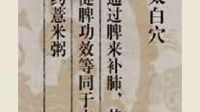 太白穴
通过脾来补肺,其
健脾功效等同于
药薏米粥。